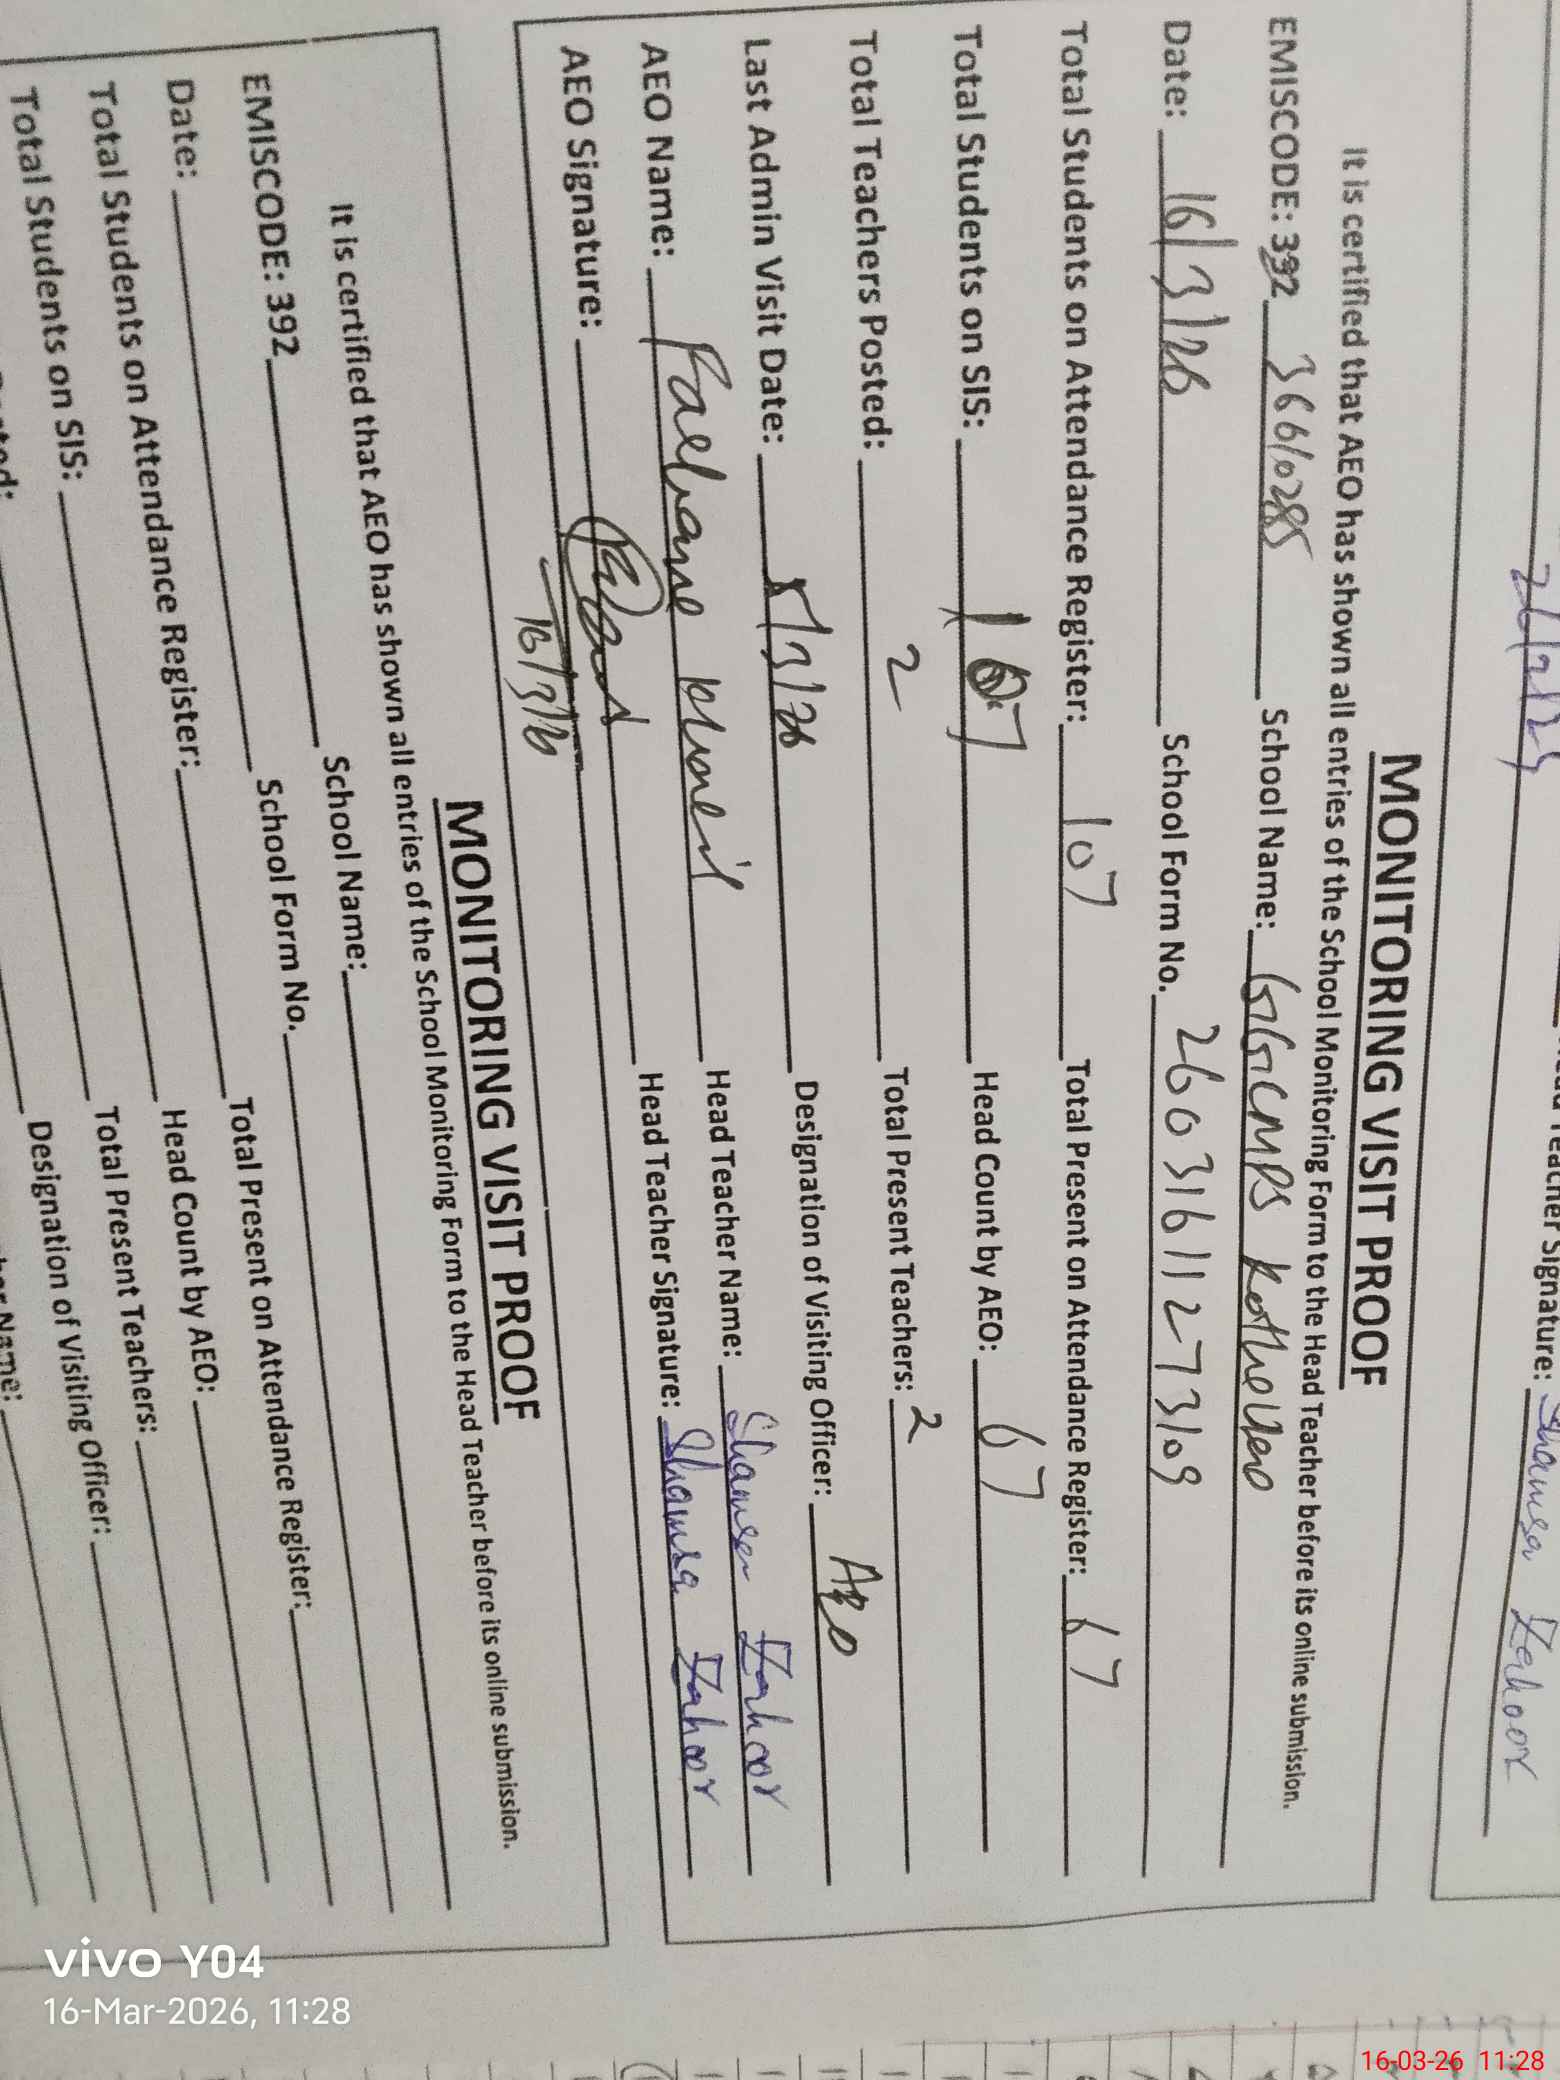 26/2/25
Head Teacher Signature: Shamsa Zahoor
MONITORING VISIT PROOF
It is certified that AEO has shown all entries of the School Monitoring Form to the Head Teacher before its online submission.
EMISCODE: 392 36610285 School Name: GGCMPS
Date: 16/3/26 School Form No. 26031611273109
Total Students on Attendance Register: 107 Total Present on Attendance Register: 67
Total Students on SIS: 107 Head Count by AEO: 67
Total Teachers Posted: 2 Total Present Teachers: 2
Last Admin Visit Date: 5/3/26 Designation of Visiting Officer: AEO
AEO Name: Head Teacher Name: Shamsa Zahoor
AEO Signature: Head Teacher Signature: Shamsa Zahoor
16/3/26
MONITORING VISIT PROOF
It is certified that AEO has shown all entries of the School Monitoring Form to the Head Teacher before its online submission.
EMISCODE: 392 School Name:
Date: School Form No.
Total Students on Attendance Register: Total Present on Attendance Register:
Total Students on SIS: Head Count by AEO:
Total Present Teachers:
Designation of Visiting Officer:
Name:
vivo Y04
16-Mar-2026, 11:28
16-03-26 11:28